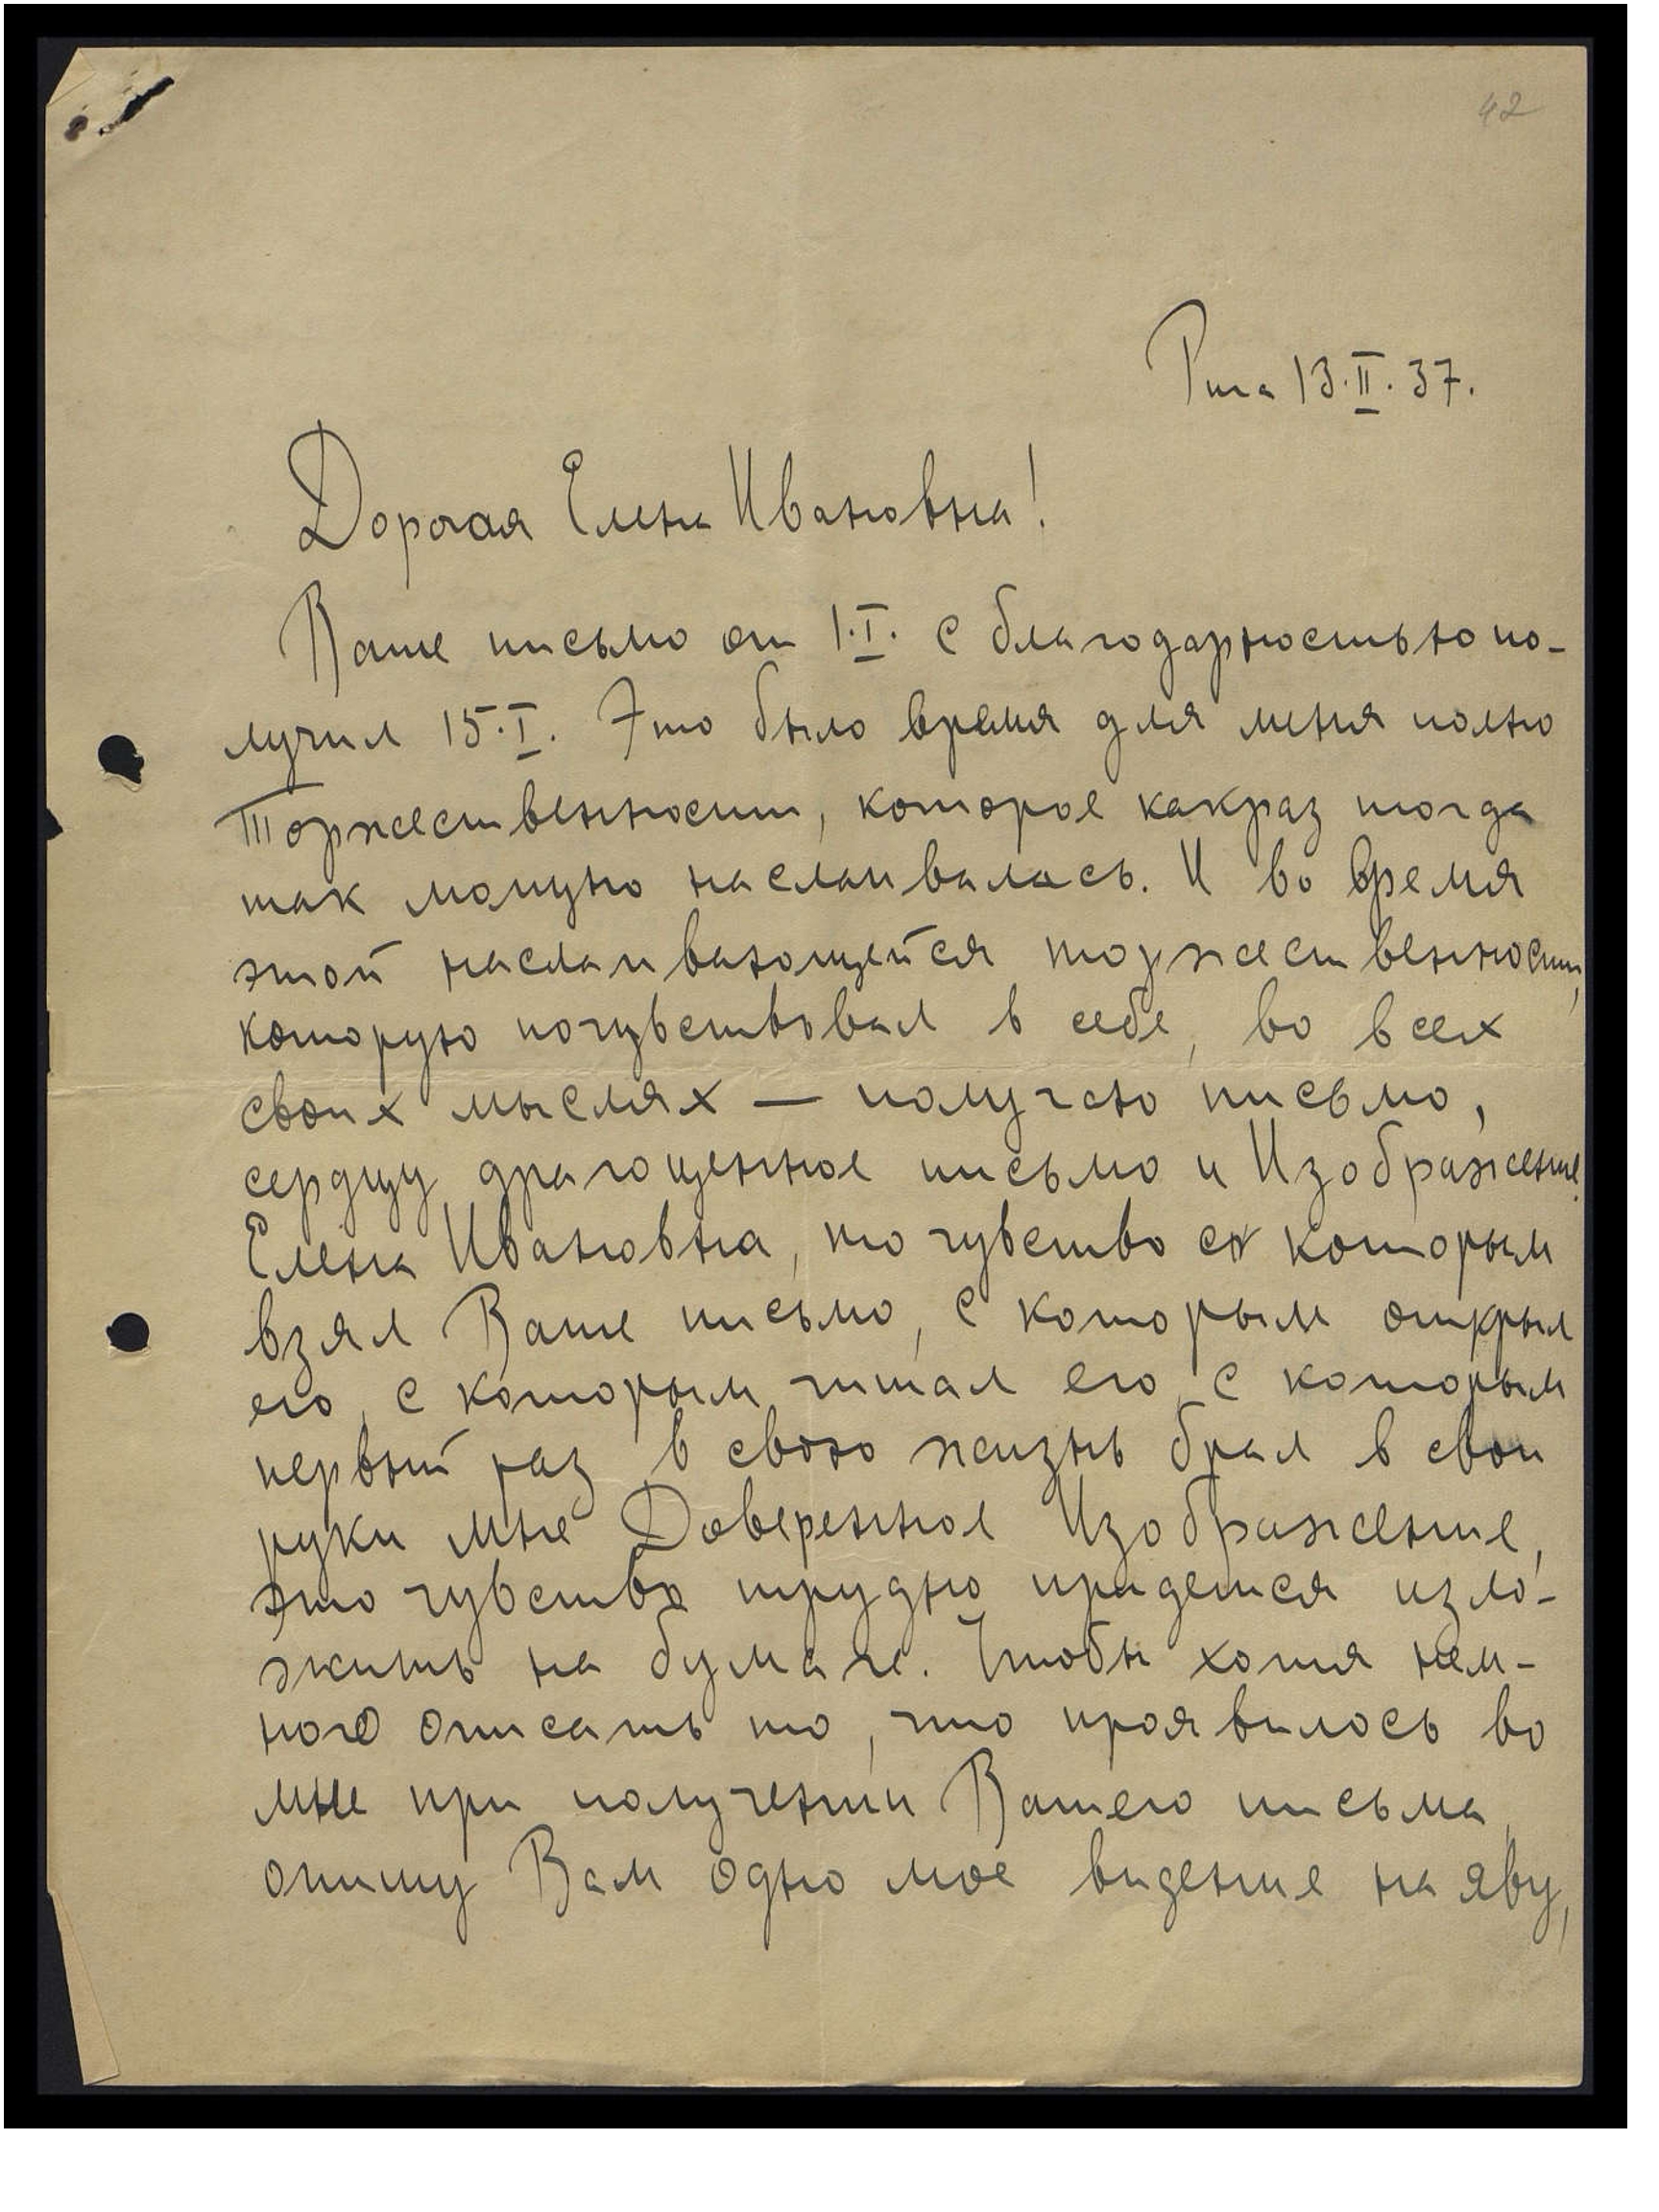 42
Рига 13.II.37.
Дорогая Елена Ивановна!
Ваше письмо от 1.I. с благодарностью по-
лучил 15.I. Это было время для меня полно
Торжественности, которое какраз тогда
так мощно наслаивалась. И во время
этой наслаивающейся торжественности,
которую почувствовал в себе, во всех
своих мыслях — получаю письмо,
сердцу драгоценное письмо и Изображение.
Елена Ивановна, то чувство с которым
взял Ваше письмо, с которым открыл
его, с которым читал его, с которым
первый раз в свою жизнь брал в свои
руки мне Доверенное Изображение,
это чувство трудно придется изло-
жить на бумаге. Чтобы хотя нем-
ного описать то, что проявилось во
мне при получении Вашего письма,
опишу Вам одно мое видение на яву,